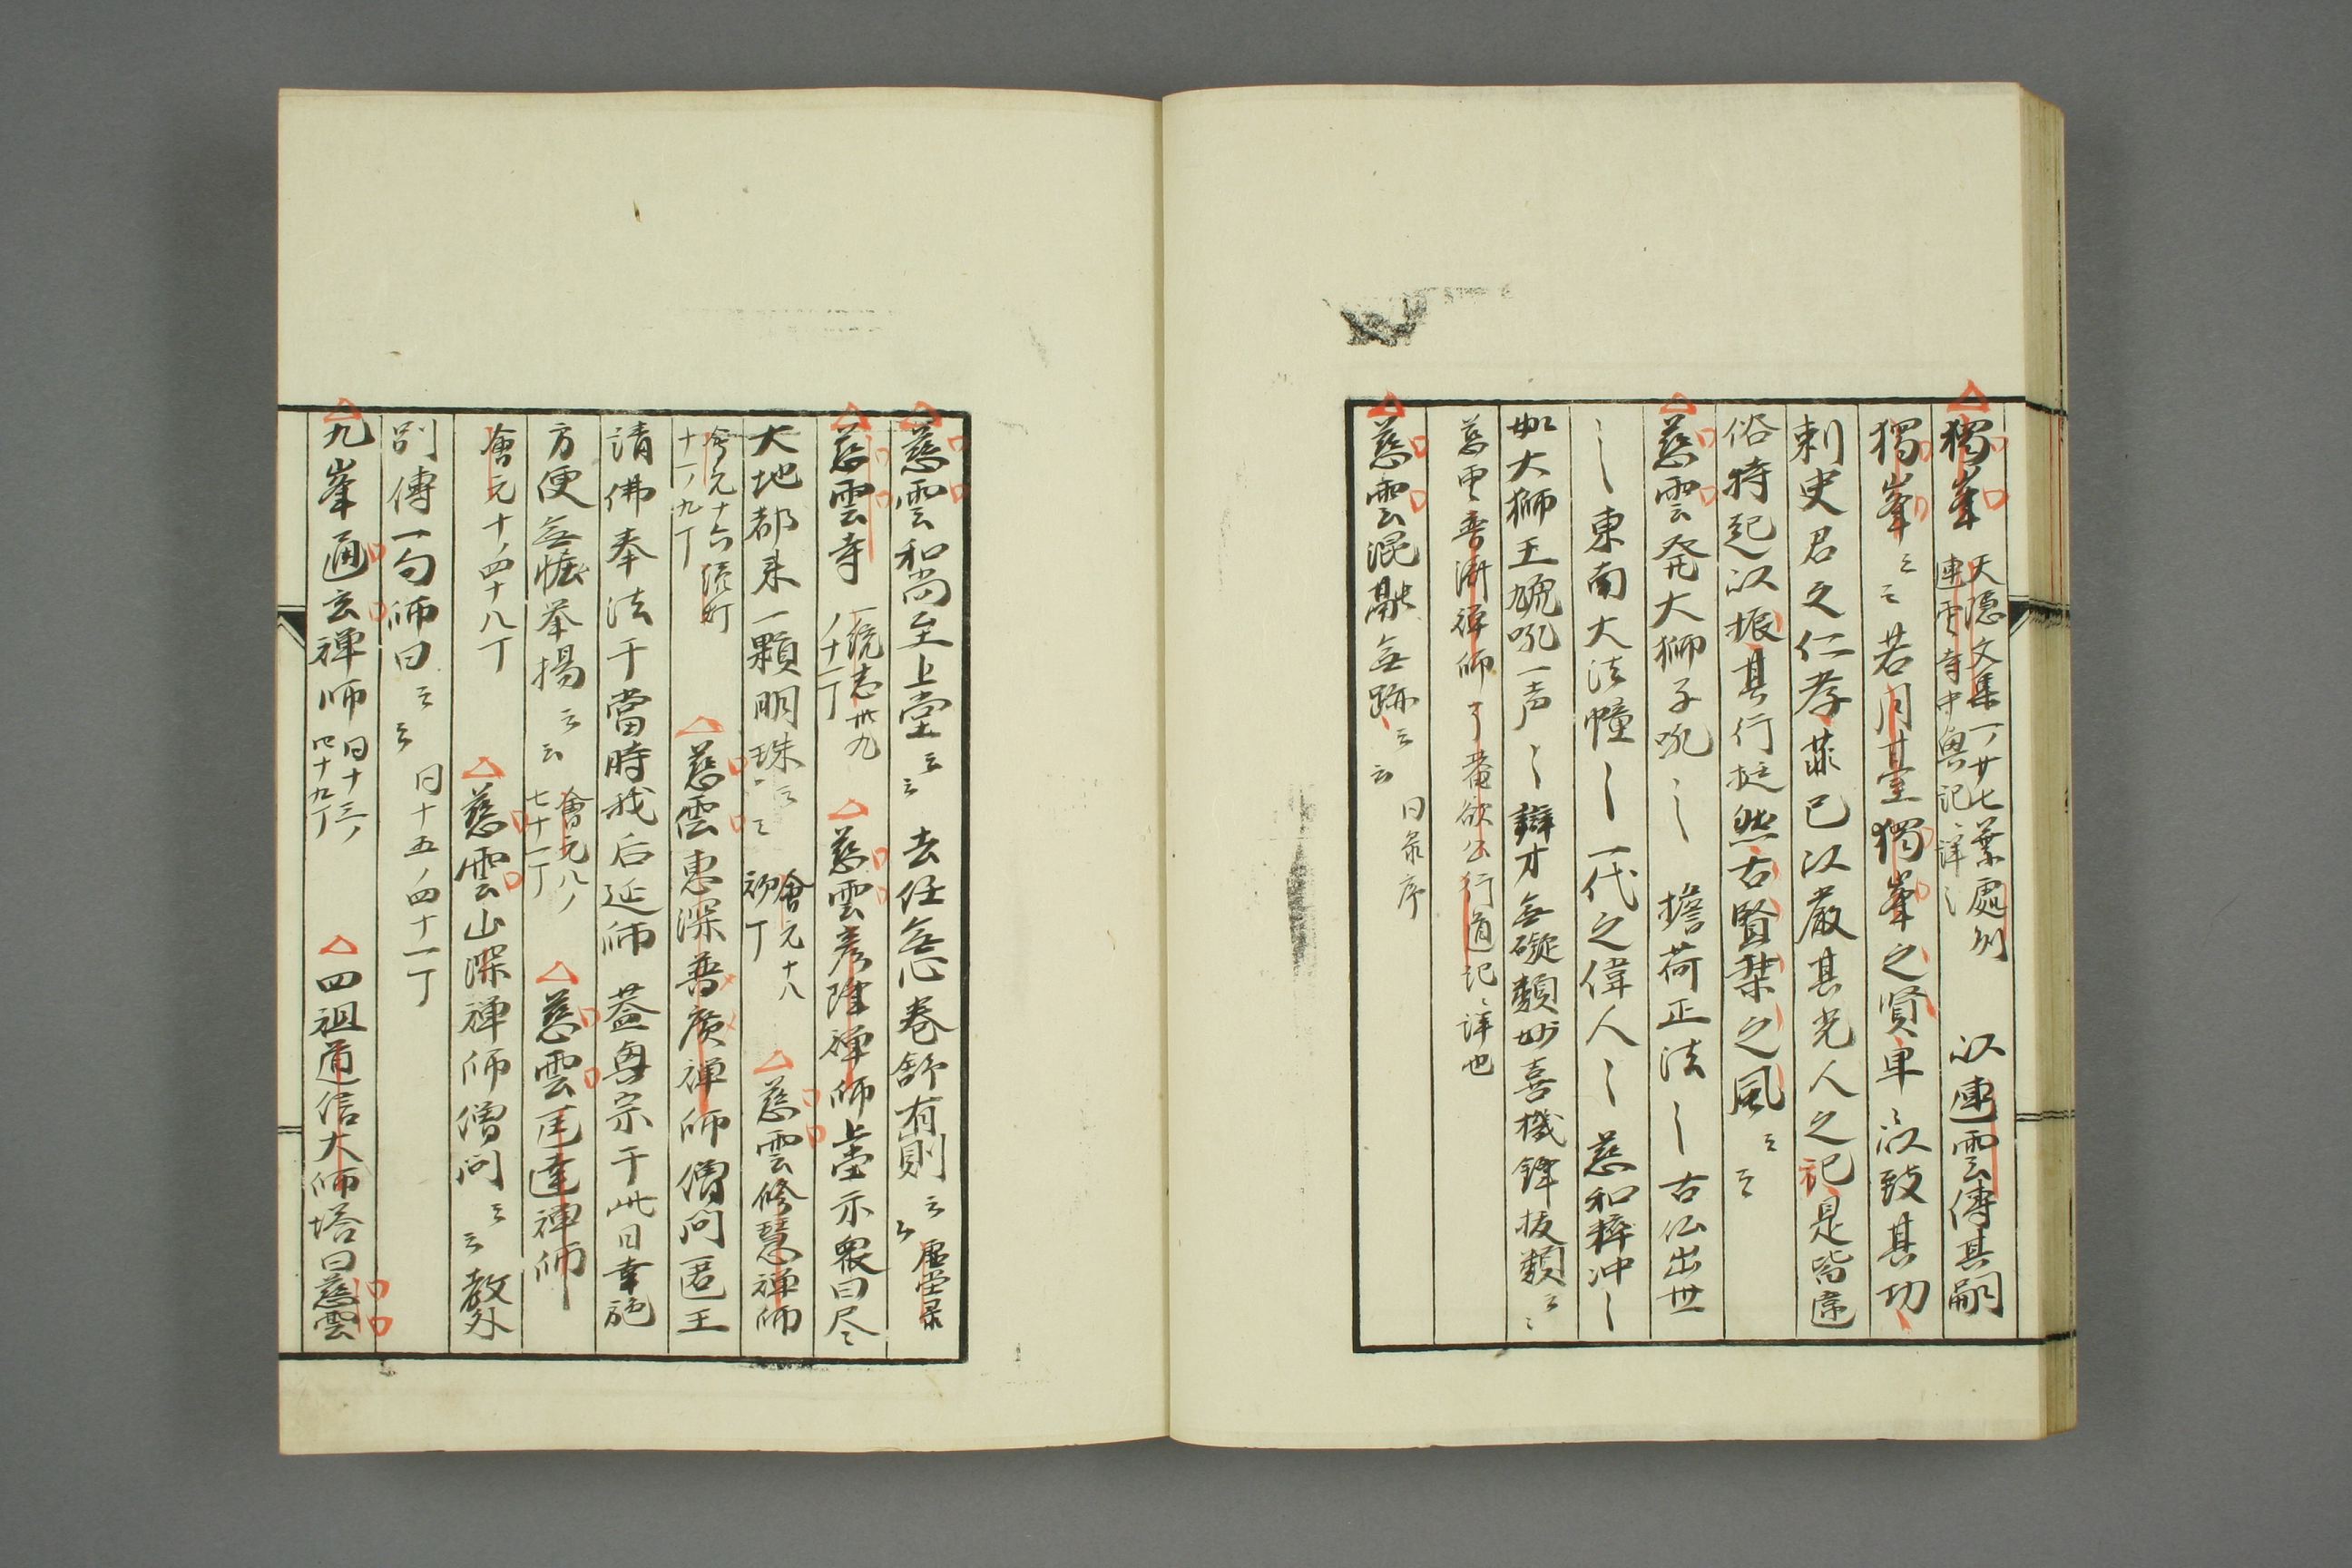 獨峯 天隱文集一ノ廿七葉處州
連雲寺中興記ニ詳ニ 以連雲傳其嗣
獨峯云云若月其室獨峯之賢卑以致其功
刺史君之仁孝菲已以嚴其光人之祀是皆
俗特起以振其行挺然古賢桀之風云云
慈雲発大獅子吼〻〻 擔荷正法〻古仏出世
〻〻東南大法幢〻〻一代之偉人〻慈和粹冲〻
如大獅王䖘吼一声〻〻辯才無礙類妙喜機鋒抜類云〻
慈雲普済禅師了菴欲公行道記ニ詳也
慈雲混融無跡云云 同录序
慈雲和尚至上堂云云 去住無心巻舒有則云云 虚堂录
慈雲寺 一統志卅九
ノ十一丁 慈雲彦隆禅師上堂示衆曰尽
大地都来一顆明珠云云 會元十八
初丁 慈雲修慧禅師
會元十六
十一ノ九丁 慈雲恵深普廣禅師僧問匿王
請佛奉法于當時我后延師 蓋毎宗于此日幸施
方便無悋挙揚云云 會元八ノ
七十一丁 慈雲匡達禅師
會元十ノ四十八丁 慈雲山深禅師僧問云云教外
別傳一句師曰云云 同十五ノ四十一丁
九峯通玄禅師 同十三ノ
四十九丁 四祖道信大师塔曰慈雲